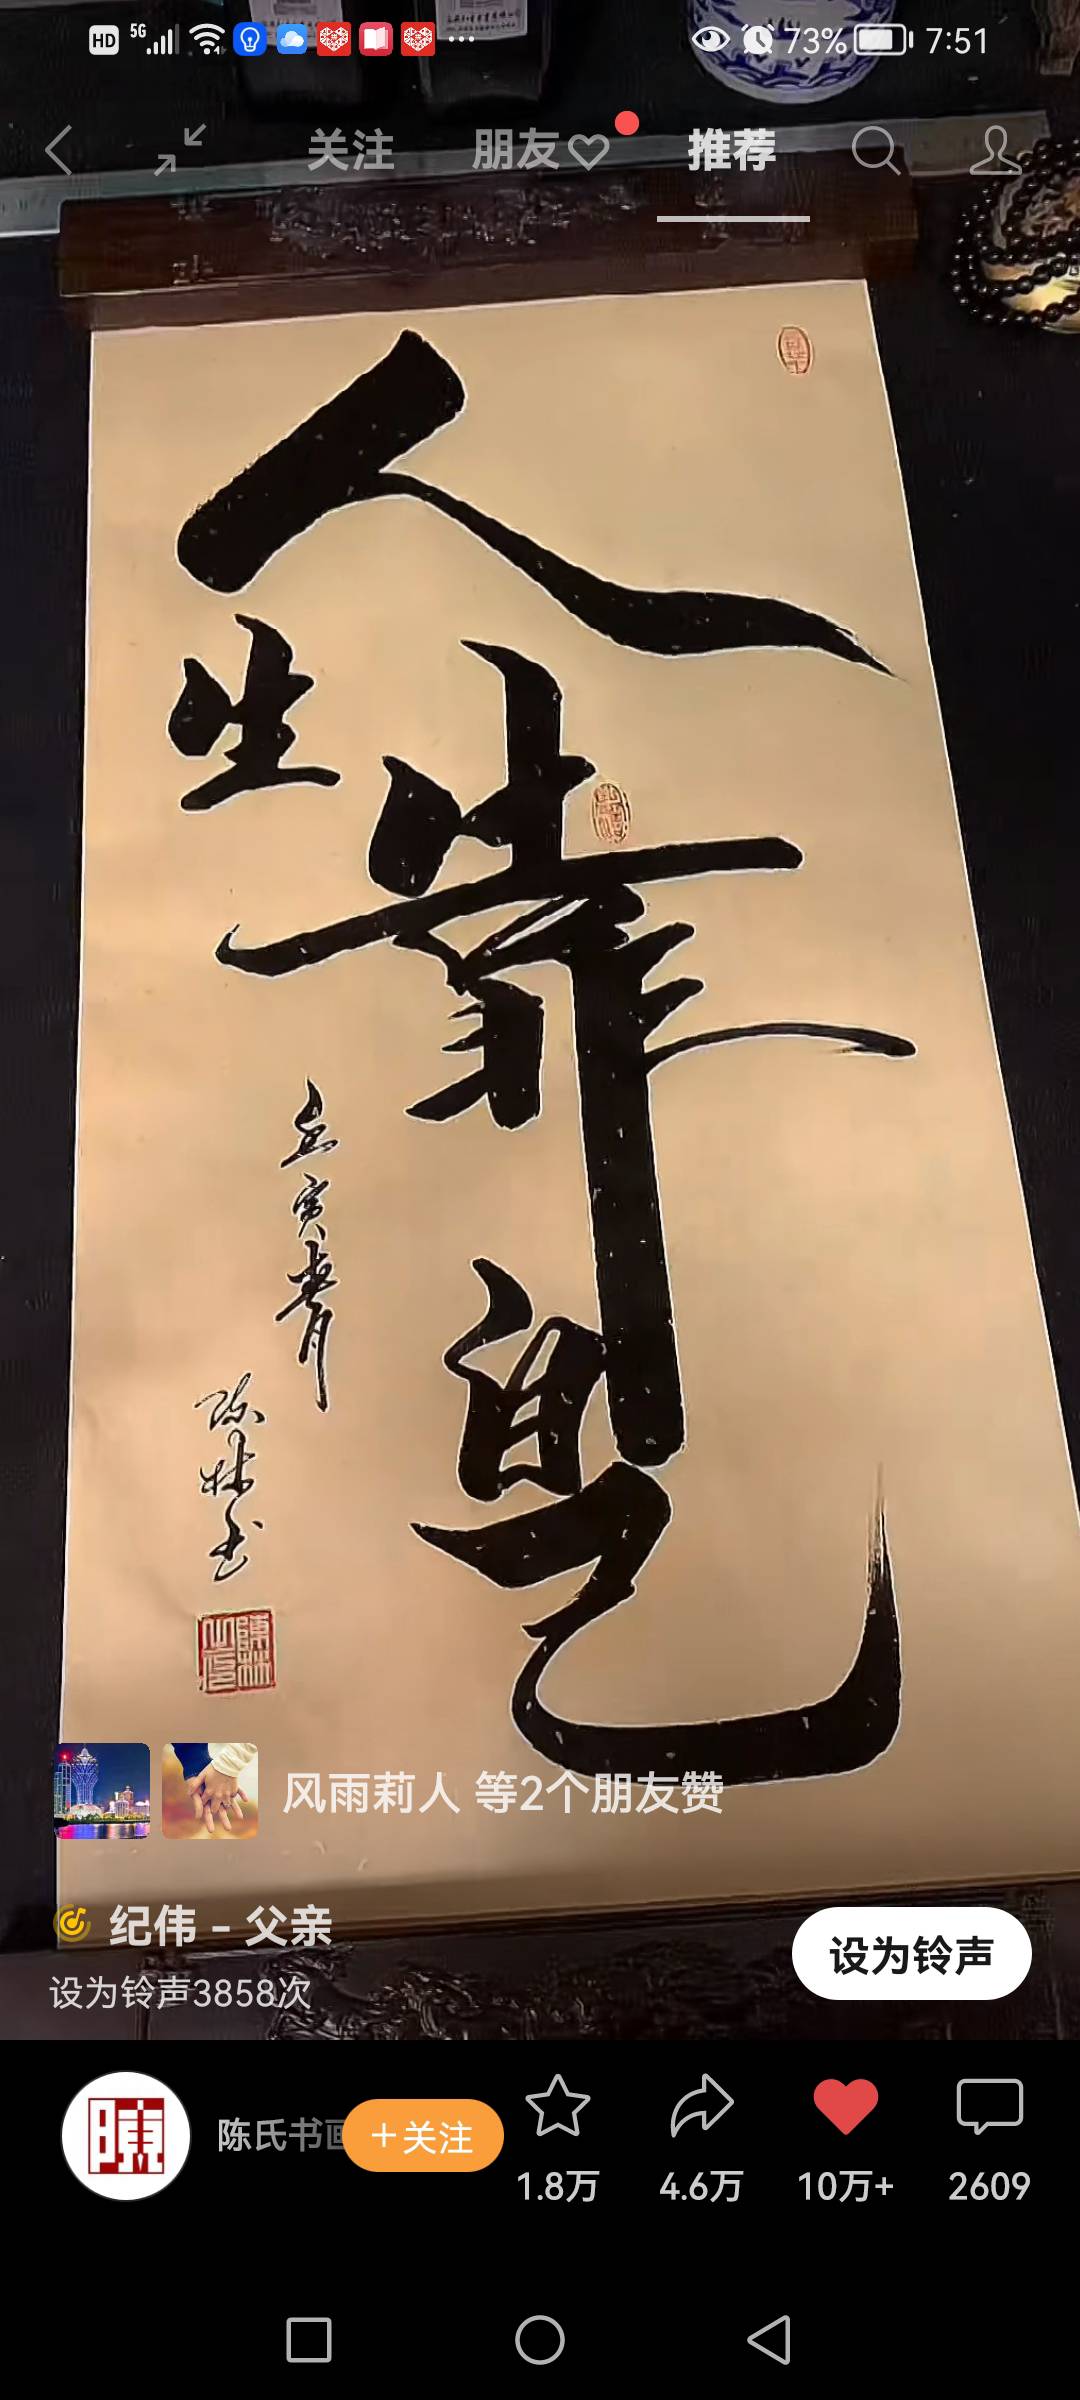 HD 5G 73% 7:51
关注 朋友 推荐
人
生
靠
自
己
壬寅春月
陈林书
风雨莉人 等2个朋友赞
纪伟 - 父亲
设为铃声3858次
设为铃声
陈氏书画
+关注
1.8万 4.6万 10万+ 2609